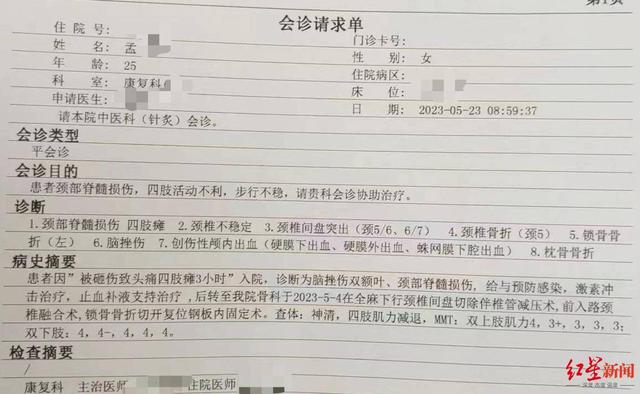 会诊请求单
住 院 号:
门诊卡号:
姓 名: 孟
性 别: 女
年 龄: 25
住院病区:
科 室: 康复科
床 位:
申请医生:
日 期: 2023-05-23 08:59:37
请本院中医科（针灸）会诊。
会诊类型
平会诊
会诊目的
患者颈部脊髓损伤，四肢活动不利，步行不稳，请贵科会诊协助治疗。
诊断
1.颈部脊髓损伤 四肢瘫 2.颈椎不稳定 3.颈椎间盘突出（颈5/6、6/7） 4.颈椎骨折（颈5） 5.锁骨骨
折（左） 6.脑挫伤 7.创伤性颅内出血（硬膜下出血、硬膜外出血、蛛网膜下腔出血） 8.枕骨骨折
病史摘要
患者因”被砸伤致头痛四肢瘫3小时”入院，诊断为脑挫伤双额叶、颈部脊髓损伤，给与预防感染，激素冲
击治疗，止血补液支持治疗，后转至我院骨科于2023-5-4在全麻下行颈椎间盘切除伴椎管减压术,前入路颈
椎融合术,锁骨骨折切开复位钢板内固定术。查体：神清，四肢肌力减退，MMT：双上肢肌力4, 3+, 3, 3, 3;
双下肢：4, 4-, 4, 4, 4。
检查摘要
/
康复科 主治医师 住院医师
红星新闻